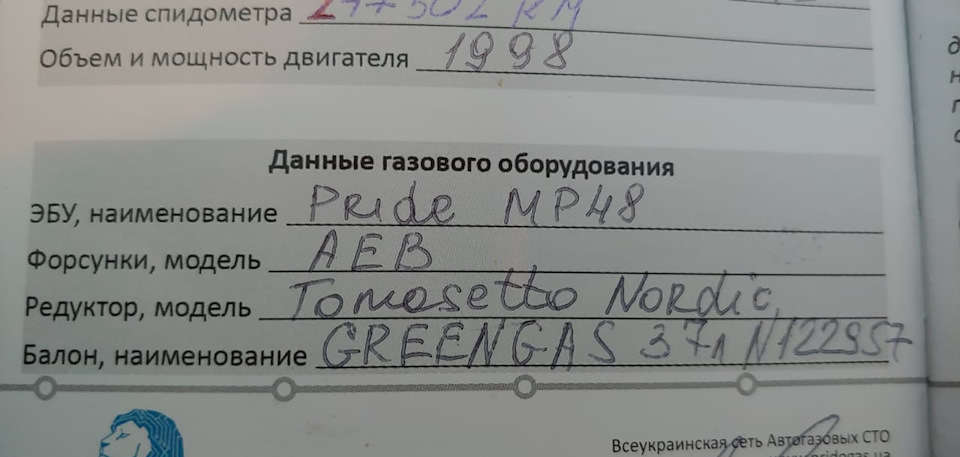 Данные спидометра км
Объем и мощность двигателя 1998
Данные газового оборудования
ЭБУ, наименование Pride MP48
Форсунки, модель AEB
Редуктор, модель Tomasetto Nordic,
Балон, наименование GREENGAS 37л N122957
Всеукраинская сеть Автогазовых СТО